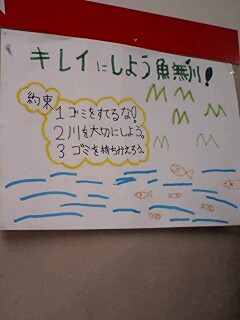 キレイにしよう魚無川!
約束
1 ゴミをすてるな!
2 川を大切にしよう。
3 ゴミを持ちかえろう。